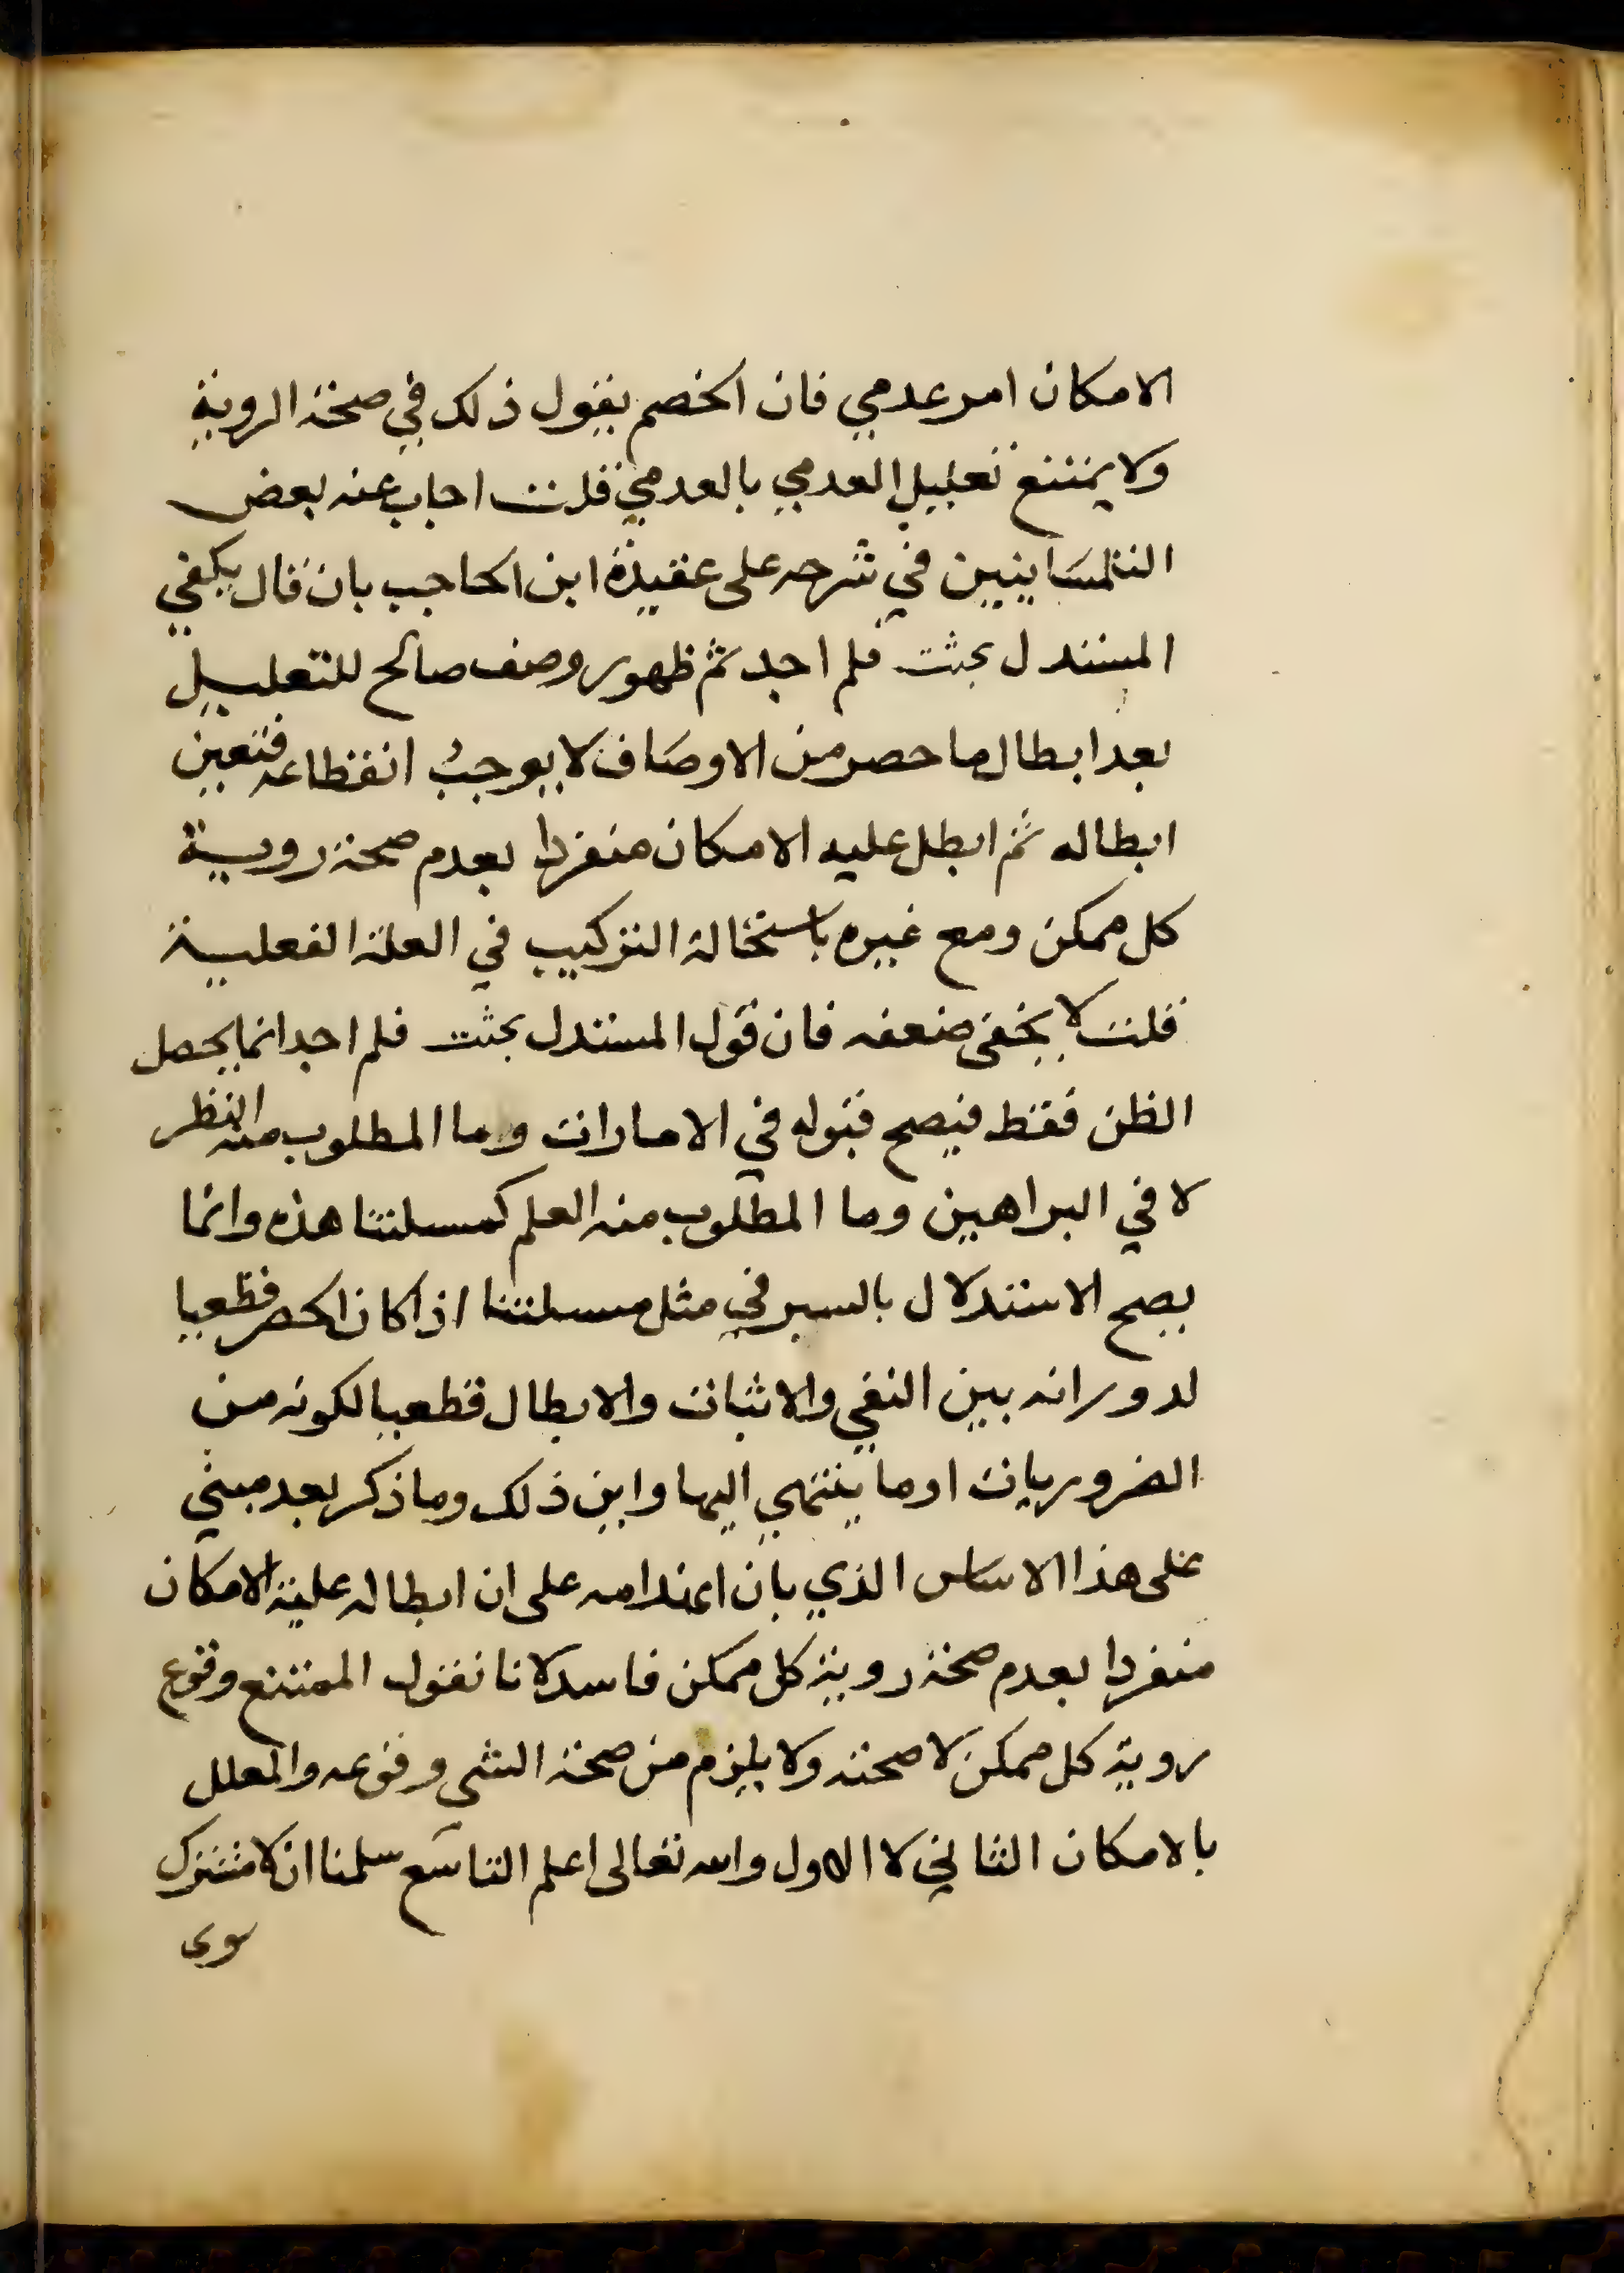 الامكان امر عدمي فان الخصم يقول ذلك في صحة الروية
ولا يمتنع تعليل العدمي بالعدمي قلت اجاب عنه بعض
التلمسانيين في شرحه على عقيدة ابن الحاجب بان قال يكفي
المستدل بحثت فلم اجد ثم ظهور وصف صالح للتعليل
بعد ابطال ما حصر من الاوصاف لا يوجب انقطاعه فتعين
ابطاله ثم ابطل عليه الامكان منفردا بعدم صحة روية
كل ممكن ومع غيره باستحالة التركيب في العلة العقلية
قلت لا يخفى ضعفه فان قول المستدل بحثت فلم اجد انما يحصل
الظن فقط فيصح قبوله في الامارات وما المطلوب منه النظر
لا في البراهين وما المطلوب منه العلم كمسلتنا هذه وانما
يصح الاستدلال بالسبر في مثل مسلتنا اذا كان الحصر قطعيا
لدورانه بين النفي والاثبات والابطال قطعيا لكونه من
الضروريات او ما ينتهي اليها واين ذلك وما ذكر بعد مبني
على هذا الاساس الذي بان انهدامه على ان ابطاله علية الامكان
منفردا بعدم صحة روية كل ممكن فاسد لانا نقول الممتنع وقوع
روية كل ممكن لا صحته ولا يلزم من صحة الشي وقوعه والمعلل
بالامكان الثاني لا الاول والله تعالى اعلم التاسع سلمنا ان لا مشترك
سوى